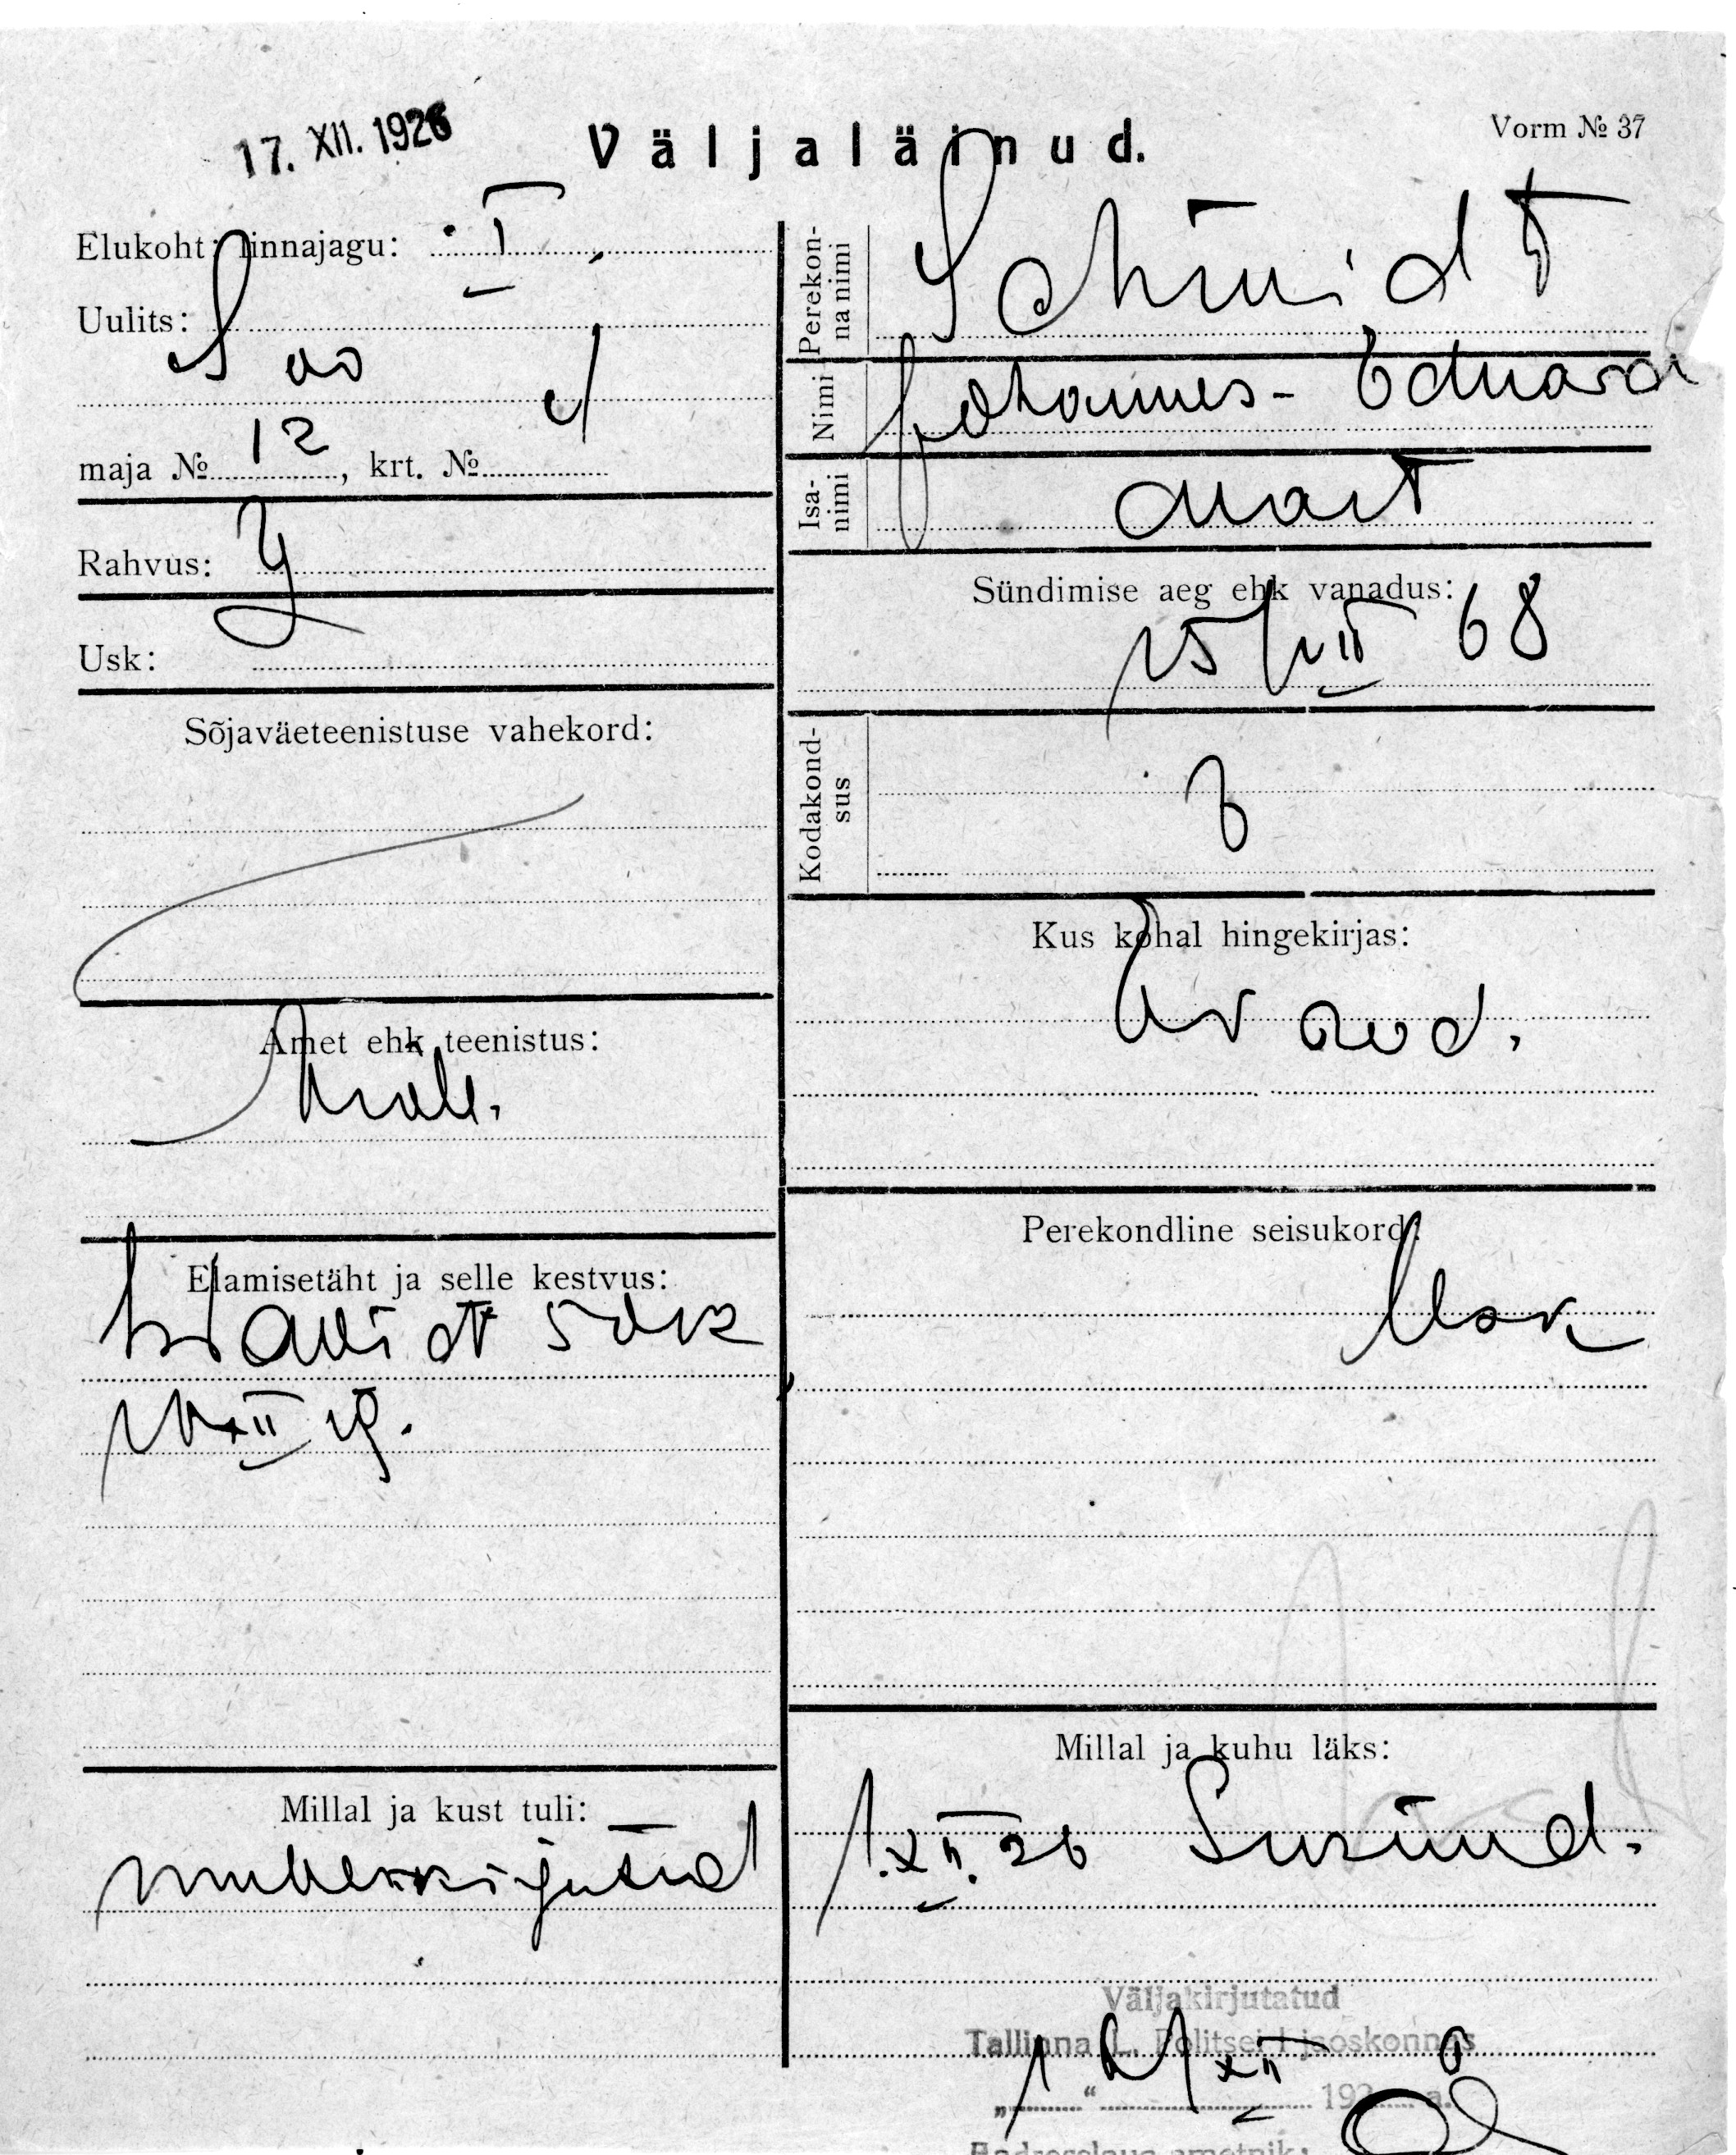 17. XII. 1926
Väljaläinud.
Vorm № 37
Elukoht: linnajagu: I
Uulits: Soo
maja № 12, krt. № 4
Rahvus:
Usk:
Sõjaväeteenistuse vahekord:
Amet ehk teenistus:
Elamisetäht ja selle kestvus:
Millal ja kust tuli:
Perekonna nimi Schmidt
Nimi Johannes-Eduard
Isanimi Mart
Sündimise aeg ehk vanadus:
15/VII 68
Kodakondsus
Kus kohal hingekirjas:
Perekondline seisukord:
Lesk
Millal ja kuhu läks:
1.XII.26 Surnud.
Väljakirjutatud
Tallinna L. Politsei I jaoskonnas
" " XII 192 6 a.
Aadresslaua ametnik: